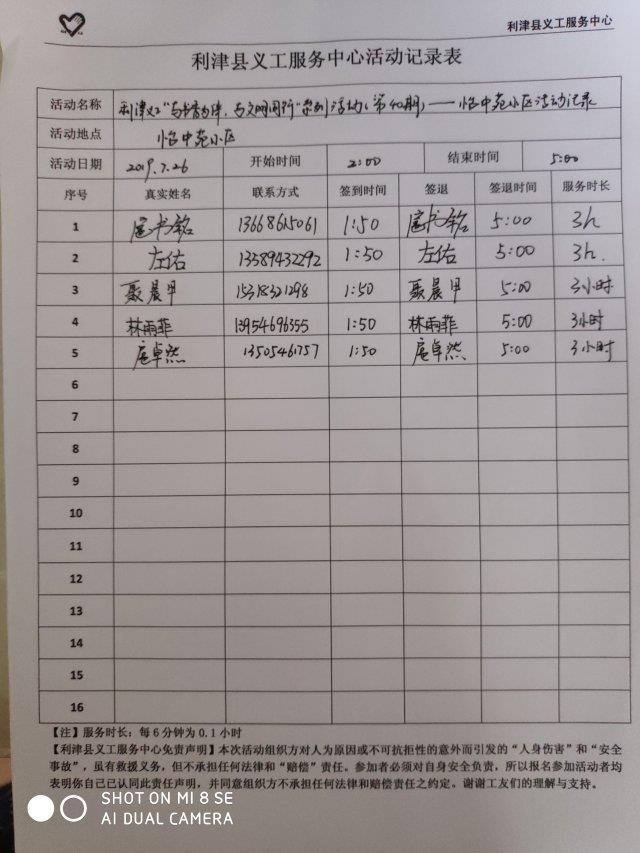 利津县义工服务中心
利津县义工服务中心活动记录表
活动名称 利津义工"与书香为伴，与文明同行"系列活动（第40期）——怡中苑小区活动记录
活动地点 怡中苑小区
活动日期 2019.7.26 开始时间 2:00 结束时间 5:00
序号 真实姓名 联系方式 签到时间 签退 签退时间 服务时长
1 扈书铭 13668615061 1:50 扈书铭 5:00 3h
2 左佑 13589432292 1:50 左佑 5:00 3h.
3 聂晨甲 15318321298 1:50 聂晨甲 5:00 3小时
4 林雨菲 13954696355 1:50 林雨菲 5:00 3小时
5 扈卓然 13505461757 1:50 扈卓然 5:00 3小时
6
7
8
9
10
11
12
13
14
15
16
【注】服务时长：每6分钟为0.1小时
【利津县义工服务中心免责声明】本次活动组织方对人为原因或不可抗拒性的意外而引发的“人身伤害”和“安全
事故”，虽有救援义务，但不承担任何法律和“赔偿”责任。参加者必须对自身安全负责，所以报名参加活动者均
表明你自己已认同此责任声明，并同意组织方不承担任何法律和赔偿责任之约定。谢谢工友们的理解与支持。
SHOT ON MI 8 SE
AI DUAL CAMERA